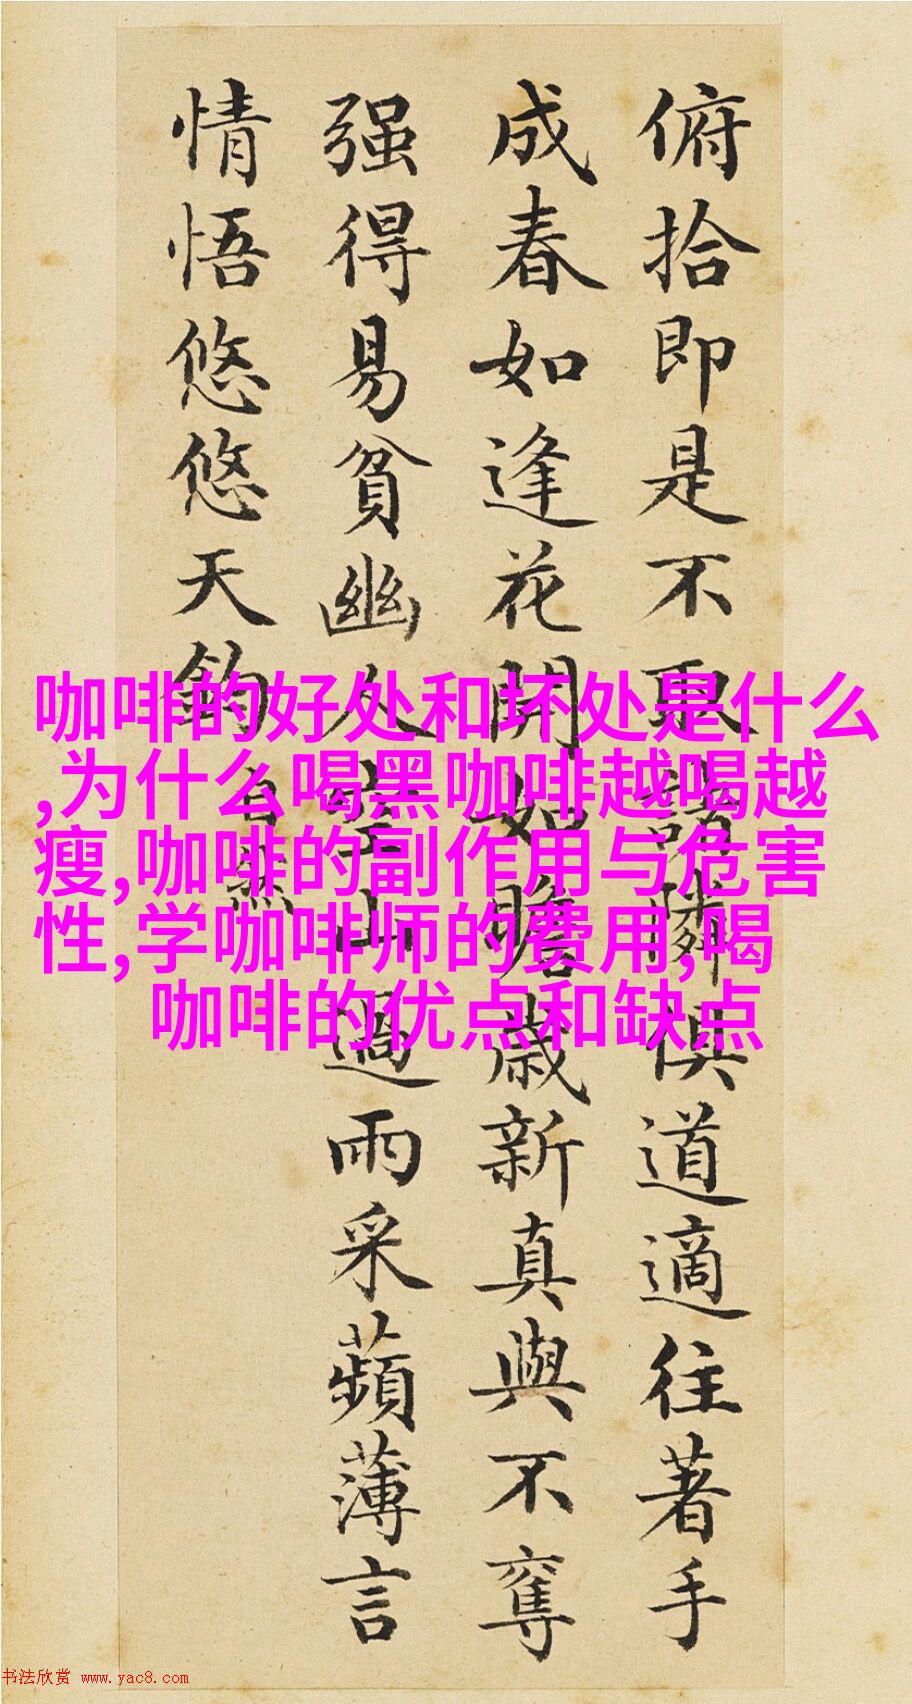 俯拾即是不取諸隣俱道適往著手
成春如逢花開如瞻歲新真與不奪
强得易貧幽人空山過雨采蘋薄言
情悟悠悠天鈞
自然
咖啡的好处和坏处是什么
,为什么喝黑咖啡越喝越
瘦,咖啡的副作用与危害
性,学咖啡师的费用,喝
咖啡的优点和缺点
书法欣赏 www.yac8.com